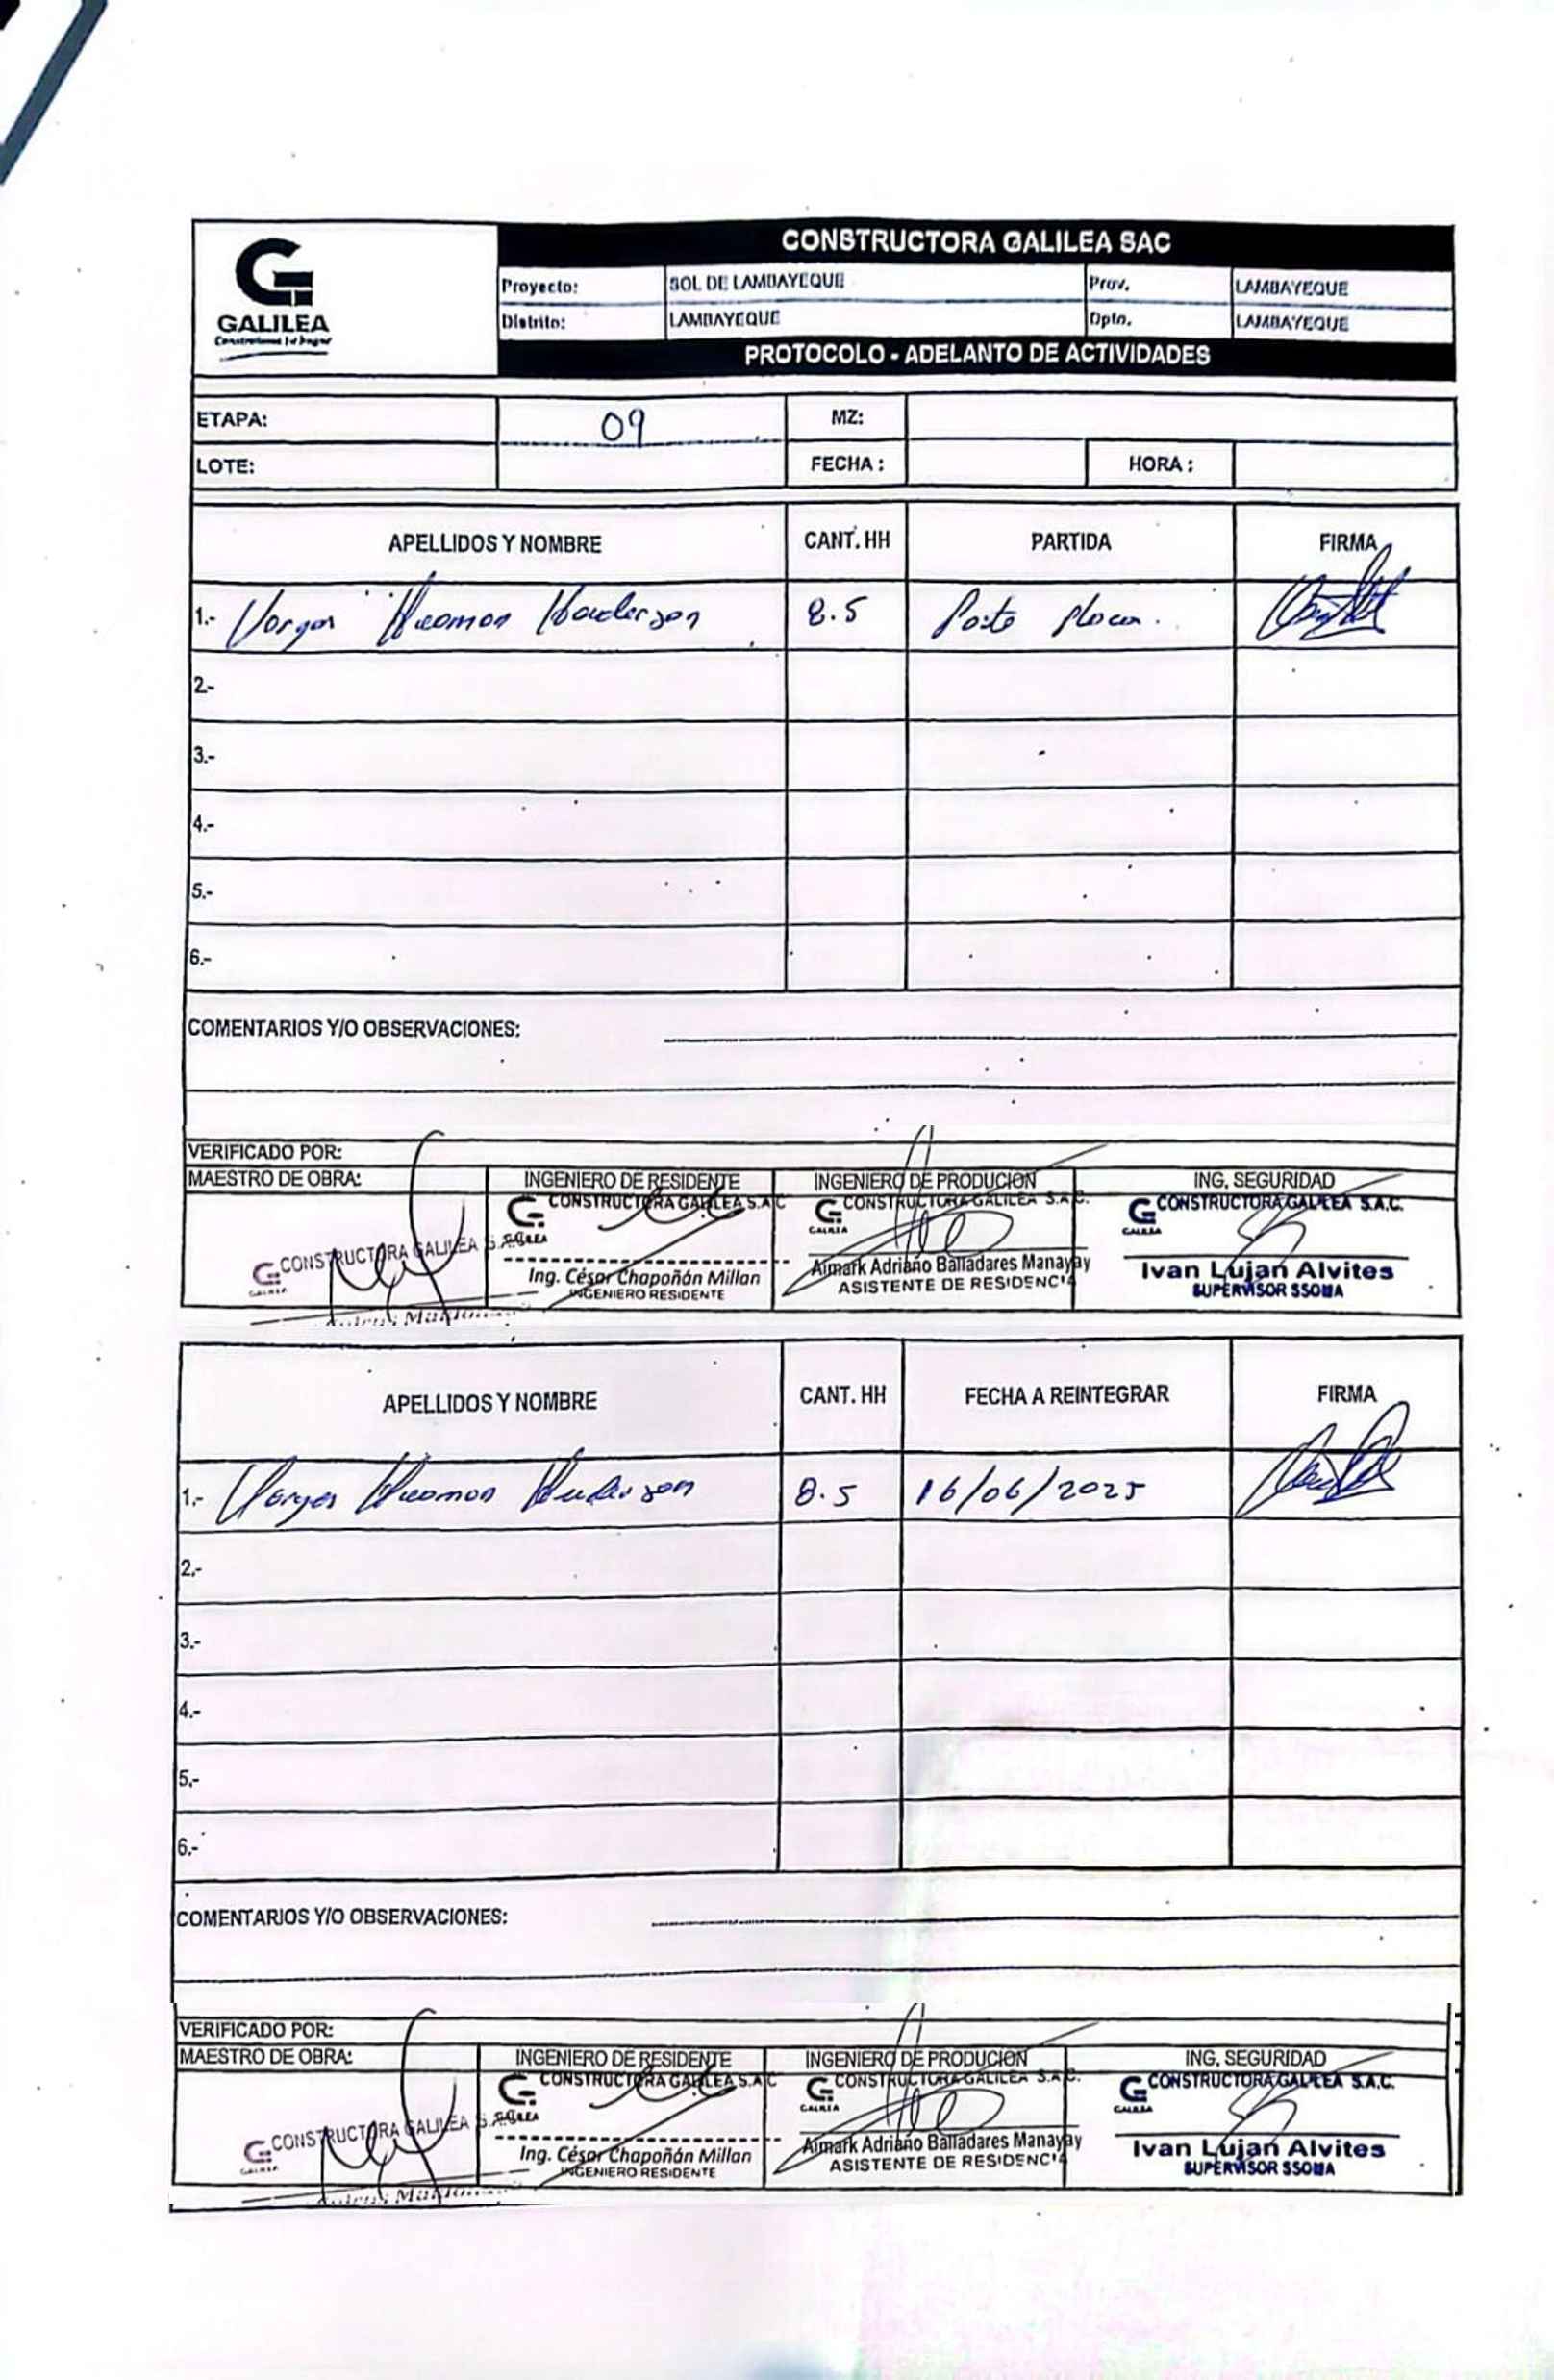 CONSTRUCTORA GALILEA SAC
GALILEA
Proyecto: SOL DE LAMBAYEQUE Prov. LAMBAYEQUE
Distrito: LAMBAYEQUE Dpto. LAMBAYEQUE
PROTOCOLO - ADELANTO DE ACTIVIDADES
ETAPA: 09 MZ:
LOTE: FECHA : HORA :
APELLIDOS Y NOMBRE CANT. HH PARTIDA FIRMA
1.- Vargas Huaman 8.5
2.-
3.-
4.-
5.-
6.-
COMENTARIOS Y/O OBSERVACIONES:
VERIFICADO POR:
MAESTRO DE OBRA: INGENIERO DE RESIDENTE INGENIERO DE PRODUCION ING. SEGURIDAD
CONSTRUCTORA GALILEA S.A.C. CONSTRUCTORA GALILEA S.A.C CONSTRUCTORA GALILEA S.A.C. CONSTRUCTORA GALILEA S.A.C.
GALILEA GALILEA GALILEA GALILEA
Ing. César Chapoñán Millan Aimark Adriano Balladares Manayay Ivan Lujan Alvites
INGENIERO RESIDENTE ASISTENTE DE RESIDENCIA SUPERVISOR SSOMA
APELLIDOS Y NOMBRE CANT. HH FECHA A REINTEGRAR FIRMA
1.- Vargas Huaman 8.5 16/06/2025
2.-
3.-
4.-
5.-
6.-
COMENTARIOS Y/O OBSERVACIONES:
VERIFICADO POR:
MAESTRO DE OBRA: INGENIERO DE RESIDENTE INGENIERO DE PRODUCION ING. SEGURIDAD
CONSTRUCTORA GALILEA S.A.C. CONSTRUCTORA GALILEA S.A.C CONSTRUCTORA GALILEA S.A.C. CONSTRUCTORA GALILEA S.A.C.
GALILEA GALILEA GALILEA GALILEA
Ing. César Chapoñán Millan Aimark Adriano Balladares Manayay Ivan Lujan Alvites
INGENIERO RESIDENTE ASISTENTE DE RESIDENCIA SUPERVISOR SSOMA